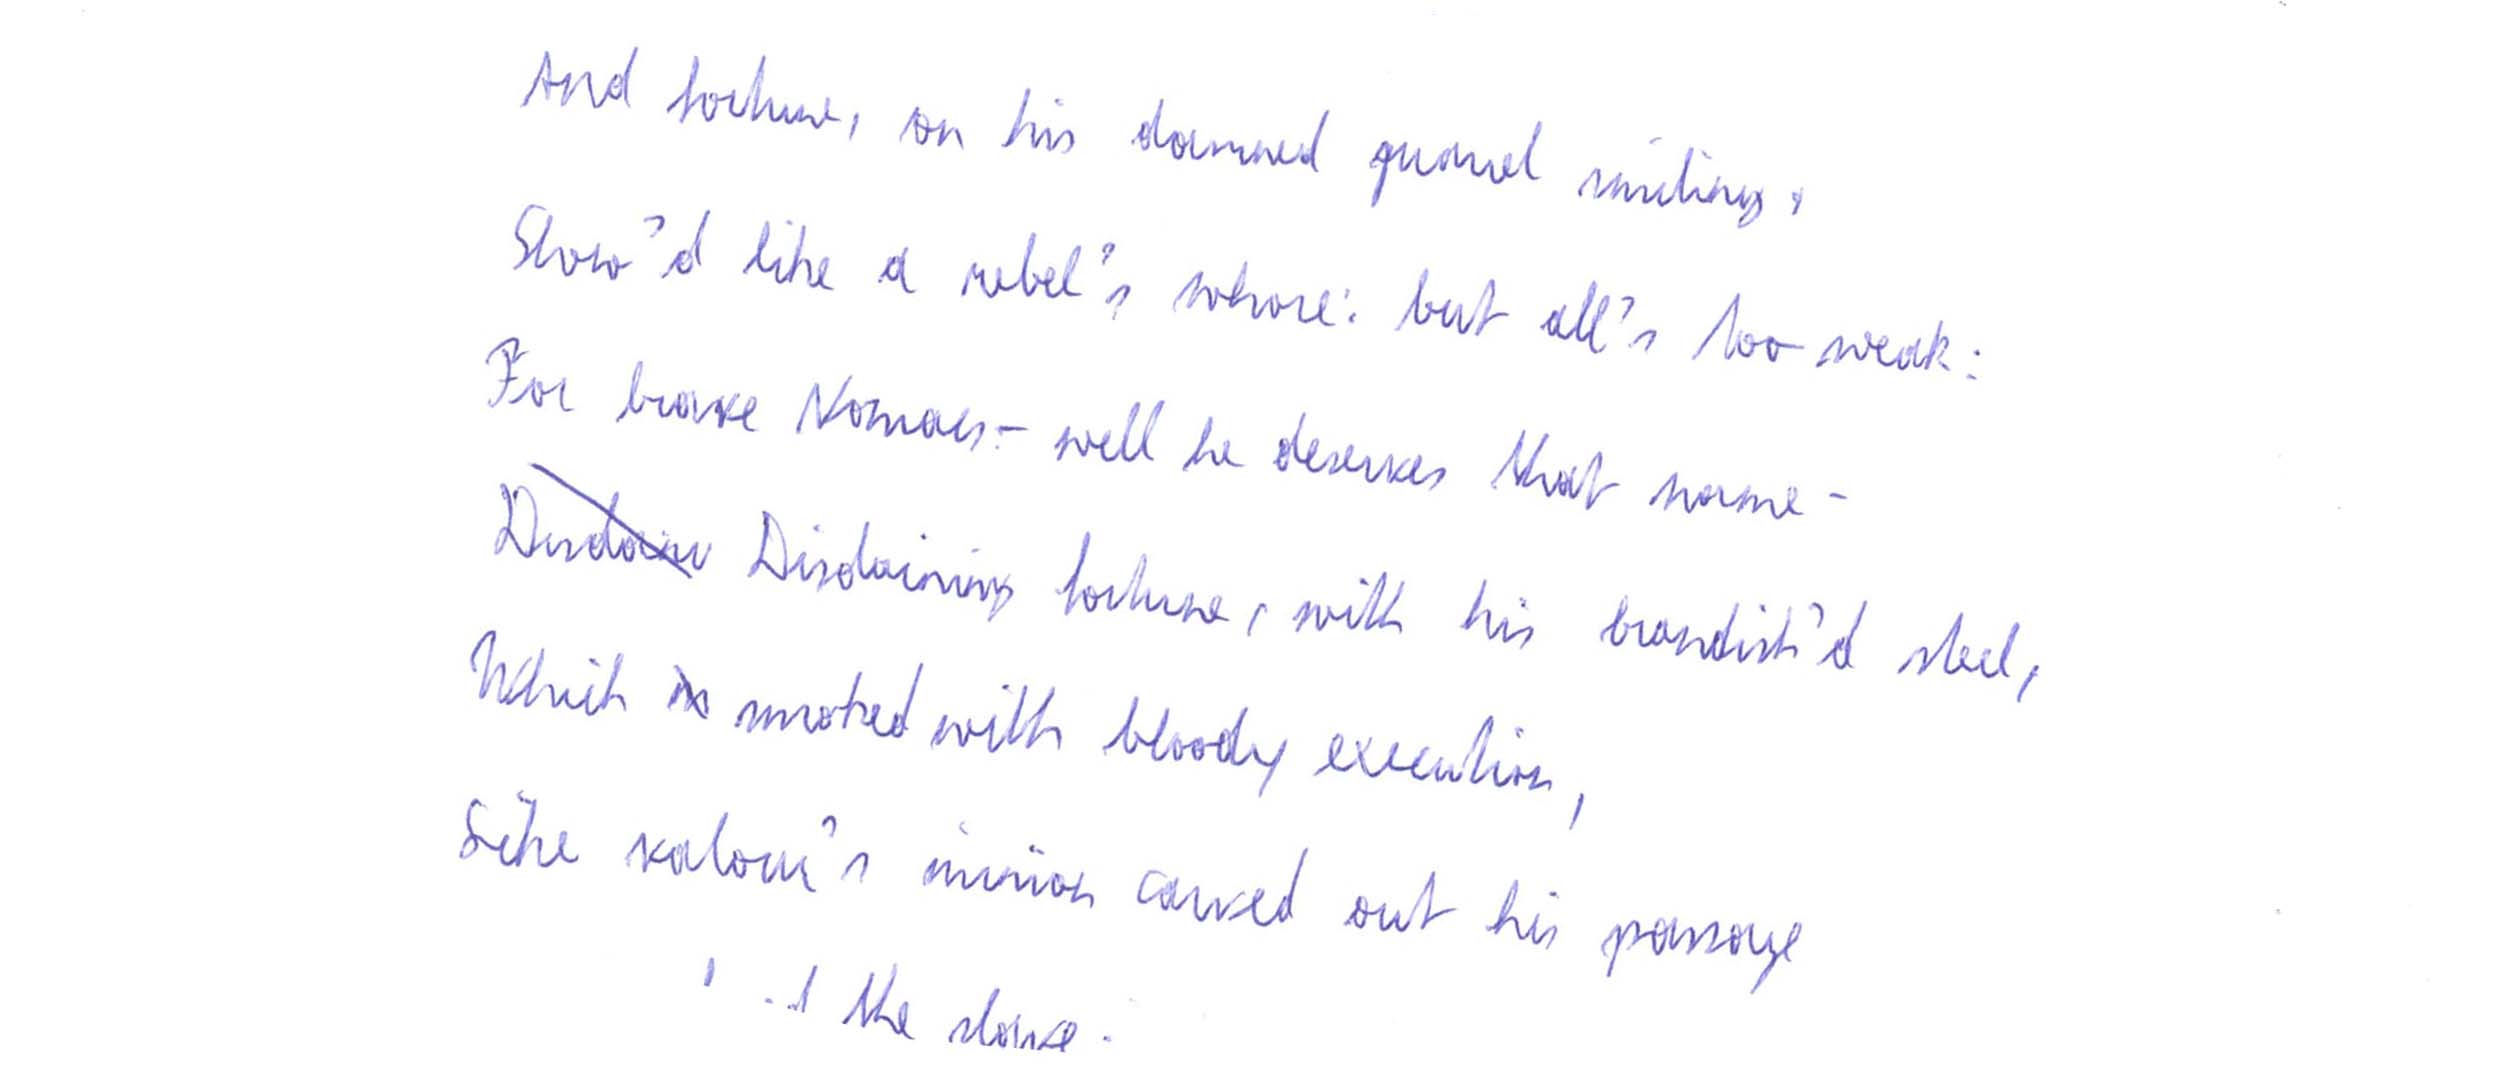 And fortune, on his damned quarrel smiling,
Show'd like a rebel's whore: but all's too weak:
For brave Nomacs - well he deserves that name -
Disdain Disdaining fortune, with his brandish'd steel,
Which smoked with bloody execution,
Like valour's minion carved out his passage
the slave.